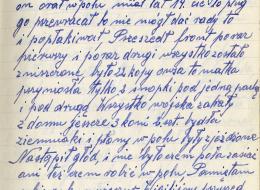 on orał w polu miał lat 14 uc to pług
go przewracał bo nie mógł dać rady to
i popłakiwał Przeszedł front poraz
pierwszy i poraz drugi wszystko zostało
zniszczone, było 22 kopy owsa to matka
przyniosła tylko 2 snopki pod jedną pachą
i pod drugą Wszystko wojska zabrały
z domu jeszcze 3 konie 2 szt. bydła
ziemniaki i plony w polu były zjeżdżone
Nastąpił głód, i nie było czem pola zasiać
ani też czem robić w polu Pamiętam